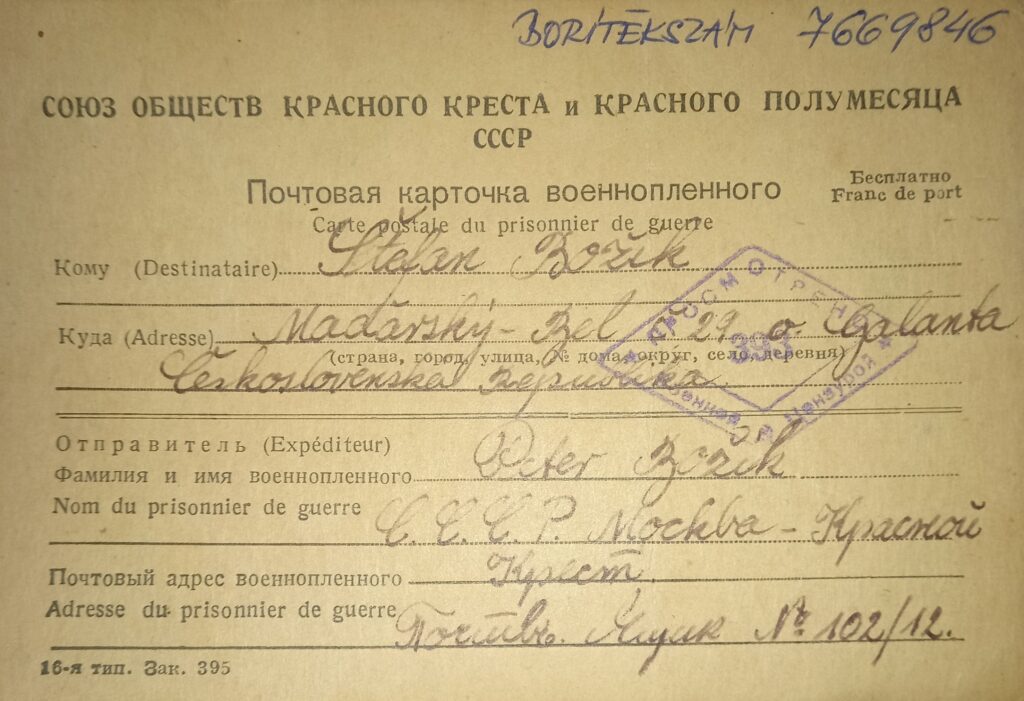 BORÍTÉKSZÁM 7669846
СОЮЗ ОБЩЕСТВ КРАСНОГО КРЕСТА и КРАСНОГО ПОЛУМЕСЯЦА
СССР
Почтовая карточка военнопленного
Бесплатно
Franc de port
Carte postale du prisonnier de guerre
Кому (Destinataire) Štefan Božik
Куда (Adresse) Maďarský-Bel 329 o. Galanta
(страна, город, улица, № дома, округ, село, деревня)
Československá Republika
ПРОСМОТРЕНО
Военной Цензурой
Отправитель (Expéditeur)
Фамилия и имя военнопленного Peter Božik
Nom du prisonnier de guerre С.С.С.Р. Москва - Красной
Почтовый адрес военнопленного Крест
Adresse du prisonnier de guerre № 102/12.
16-я тип. Зак. 395